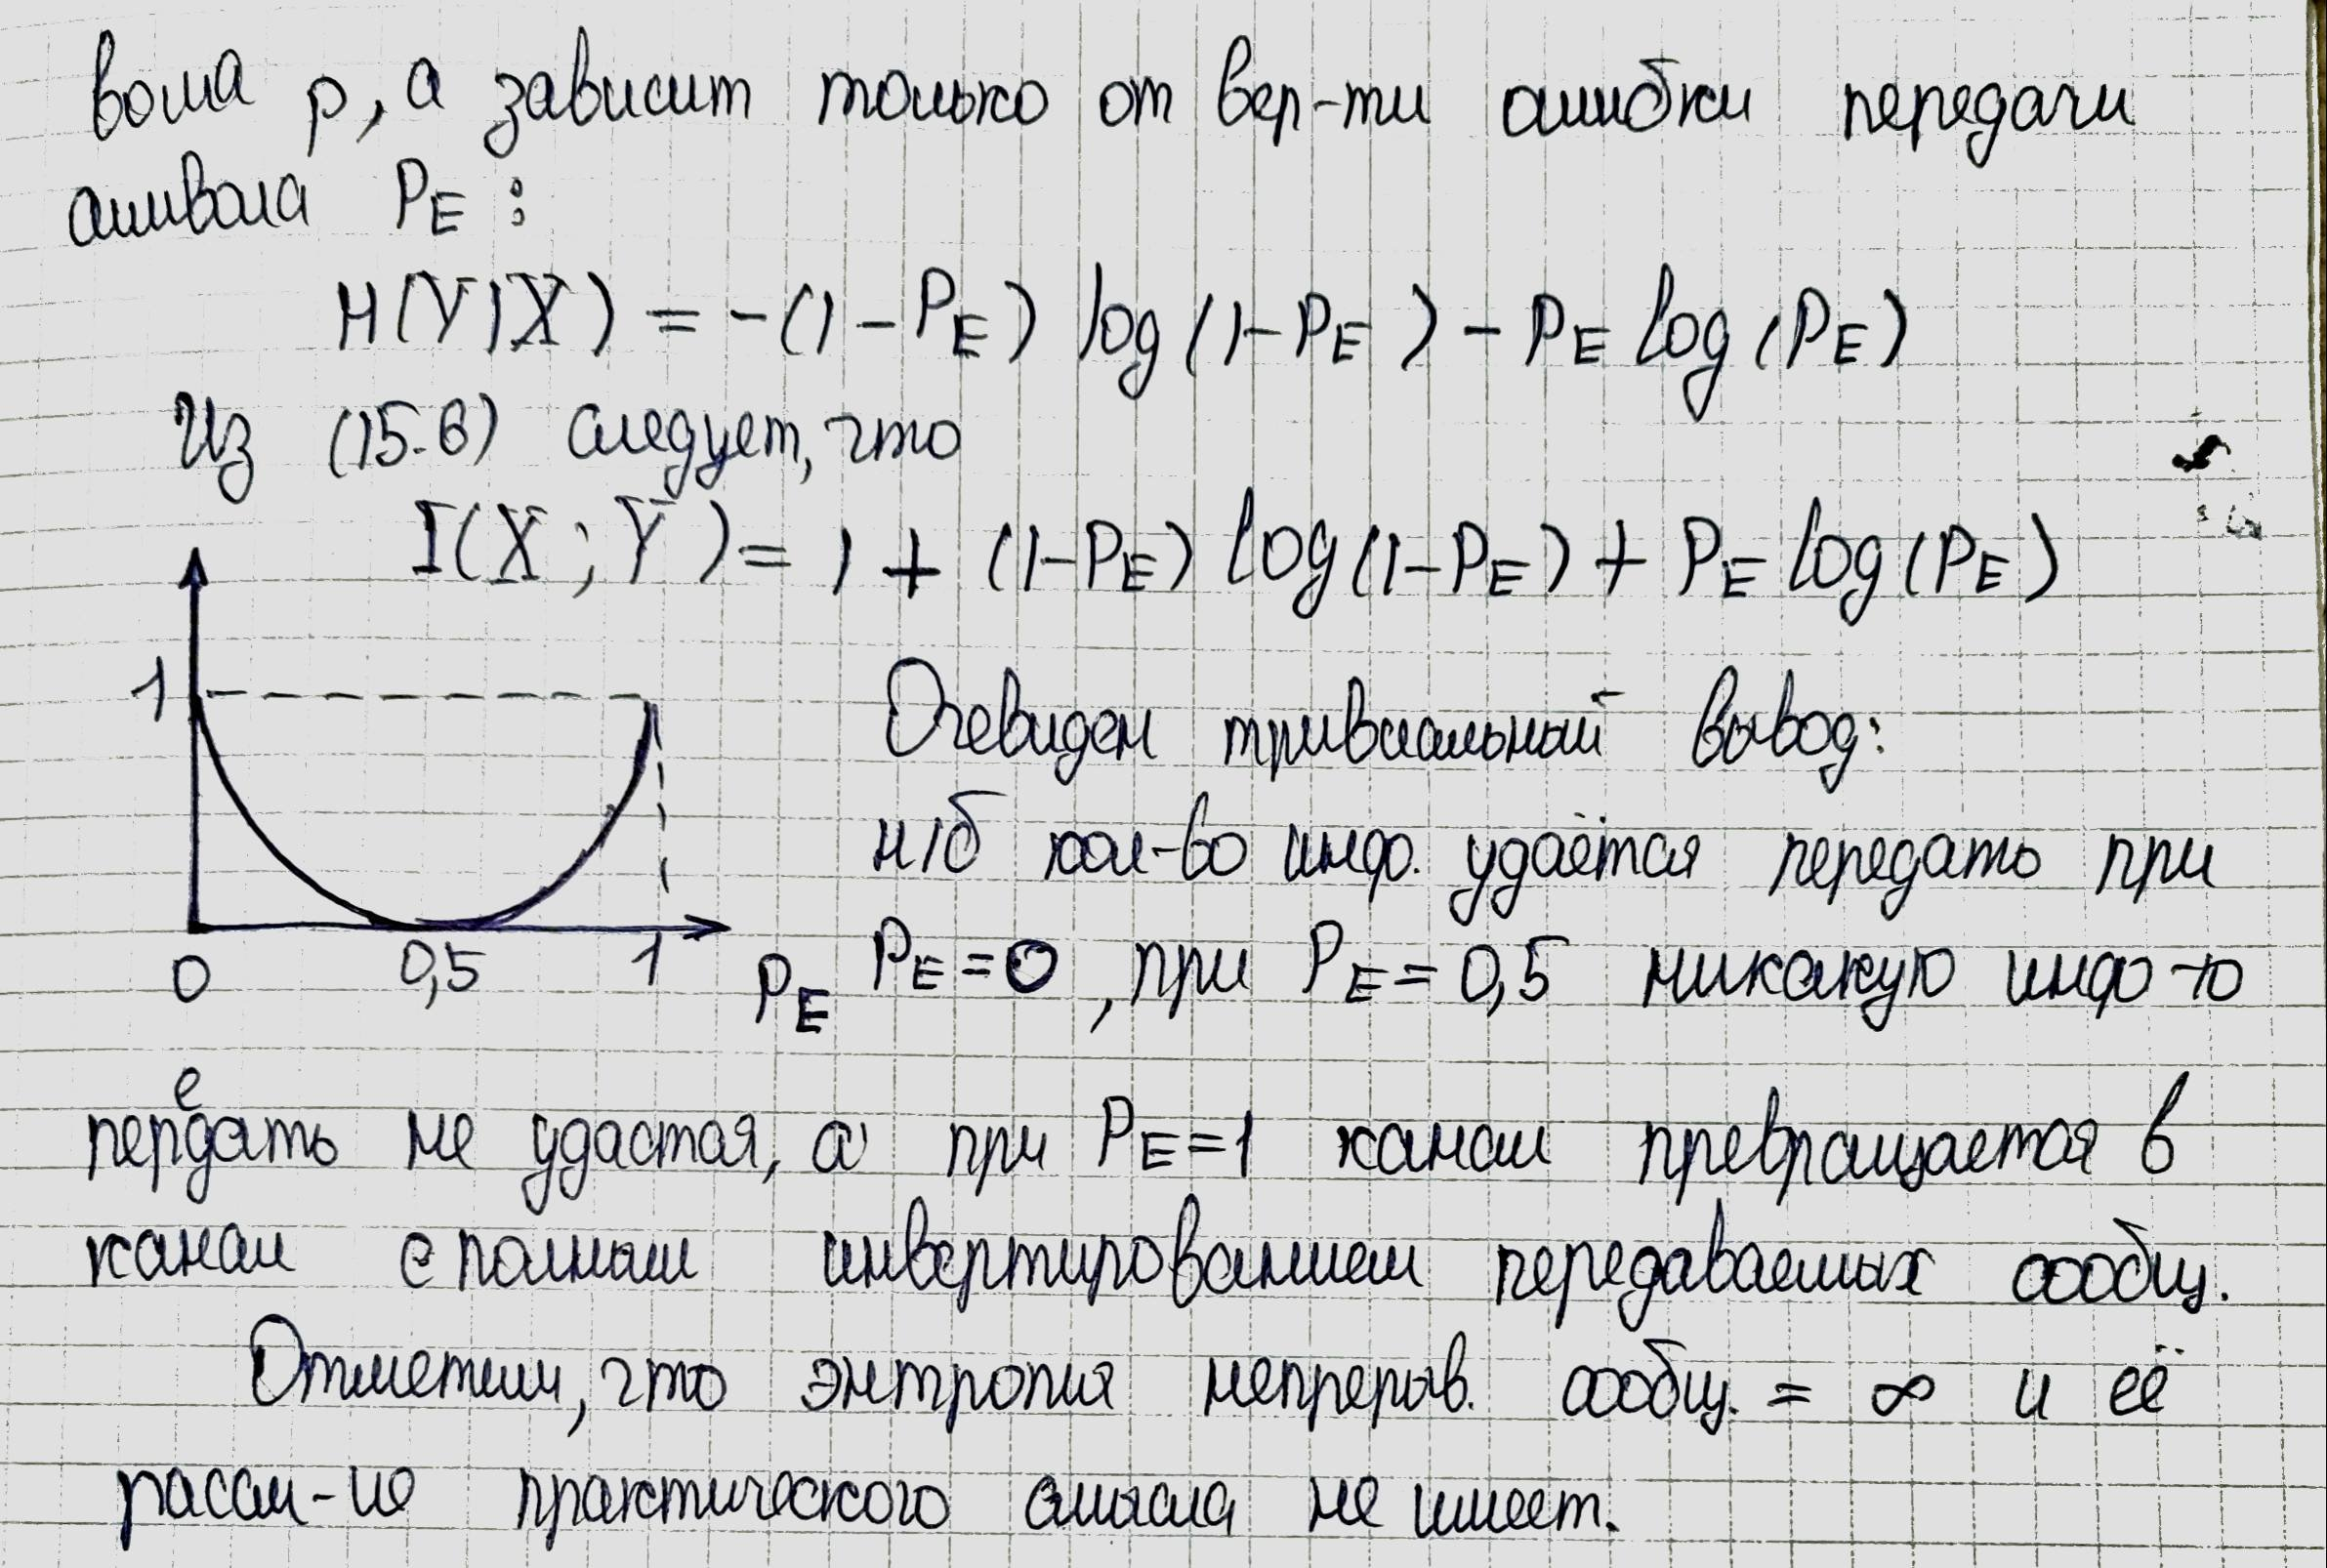 вола p, а зависит только от вер-ти ошибки передачи
символа P_E :
H(Y|X) = -(1-P_E) log(1-P_E) - P_E log(P_E)
Из (15.6) следует, что
I(X;Y) = 1 + (1-P_E) log(1-P_E) + P_E log(P_E)
1
0 0,5 1 P_E
Очевиден тривиальный вывод:
н/б кол-во инф. удаётся передать при
P_E = 0, при P_E = 0,5 никакую инф-ю
передать не удастся, а при P_E = 1 канал превращается в
канал с полным инвертированием передаваемых сообщ.
Отметим, что энтропия непрерыв. сообщ. = ∞ и её
рассм-ие практического смысла не имеет.